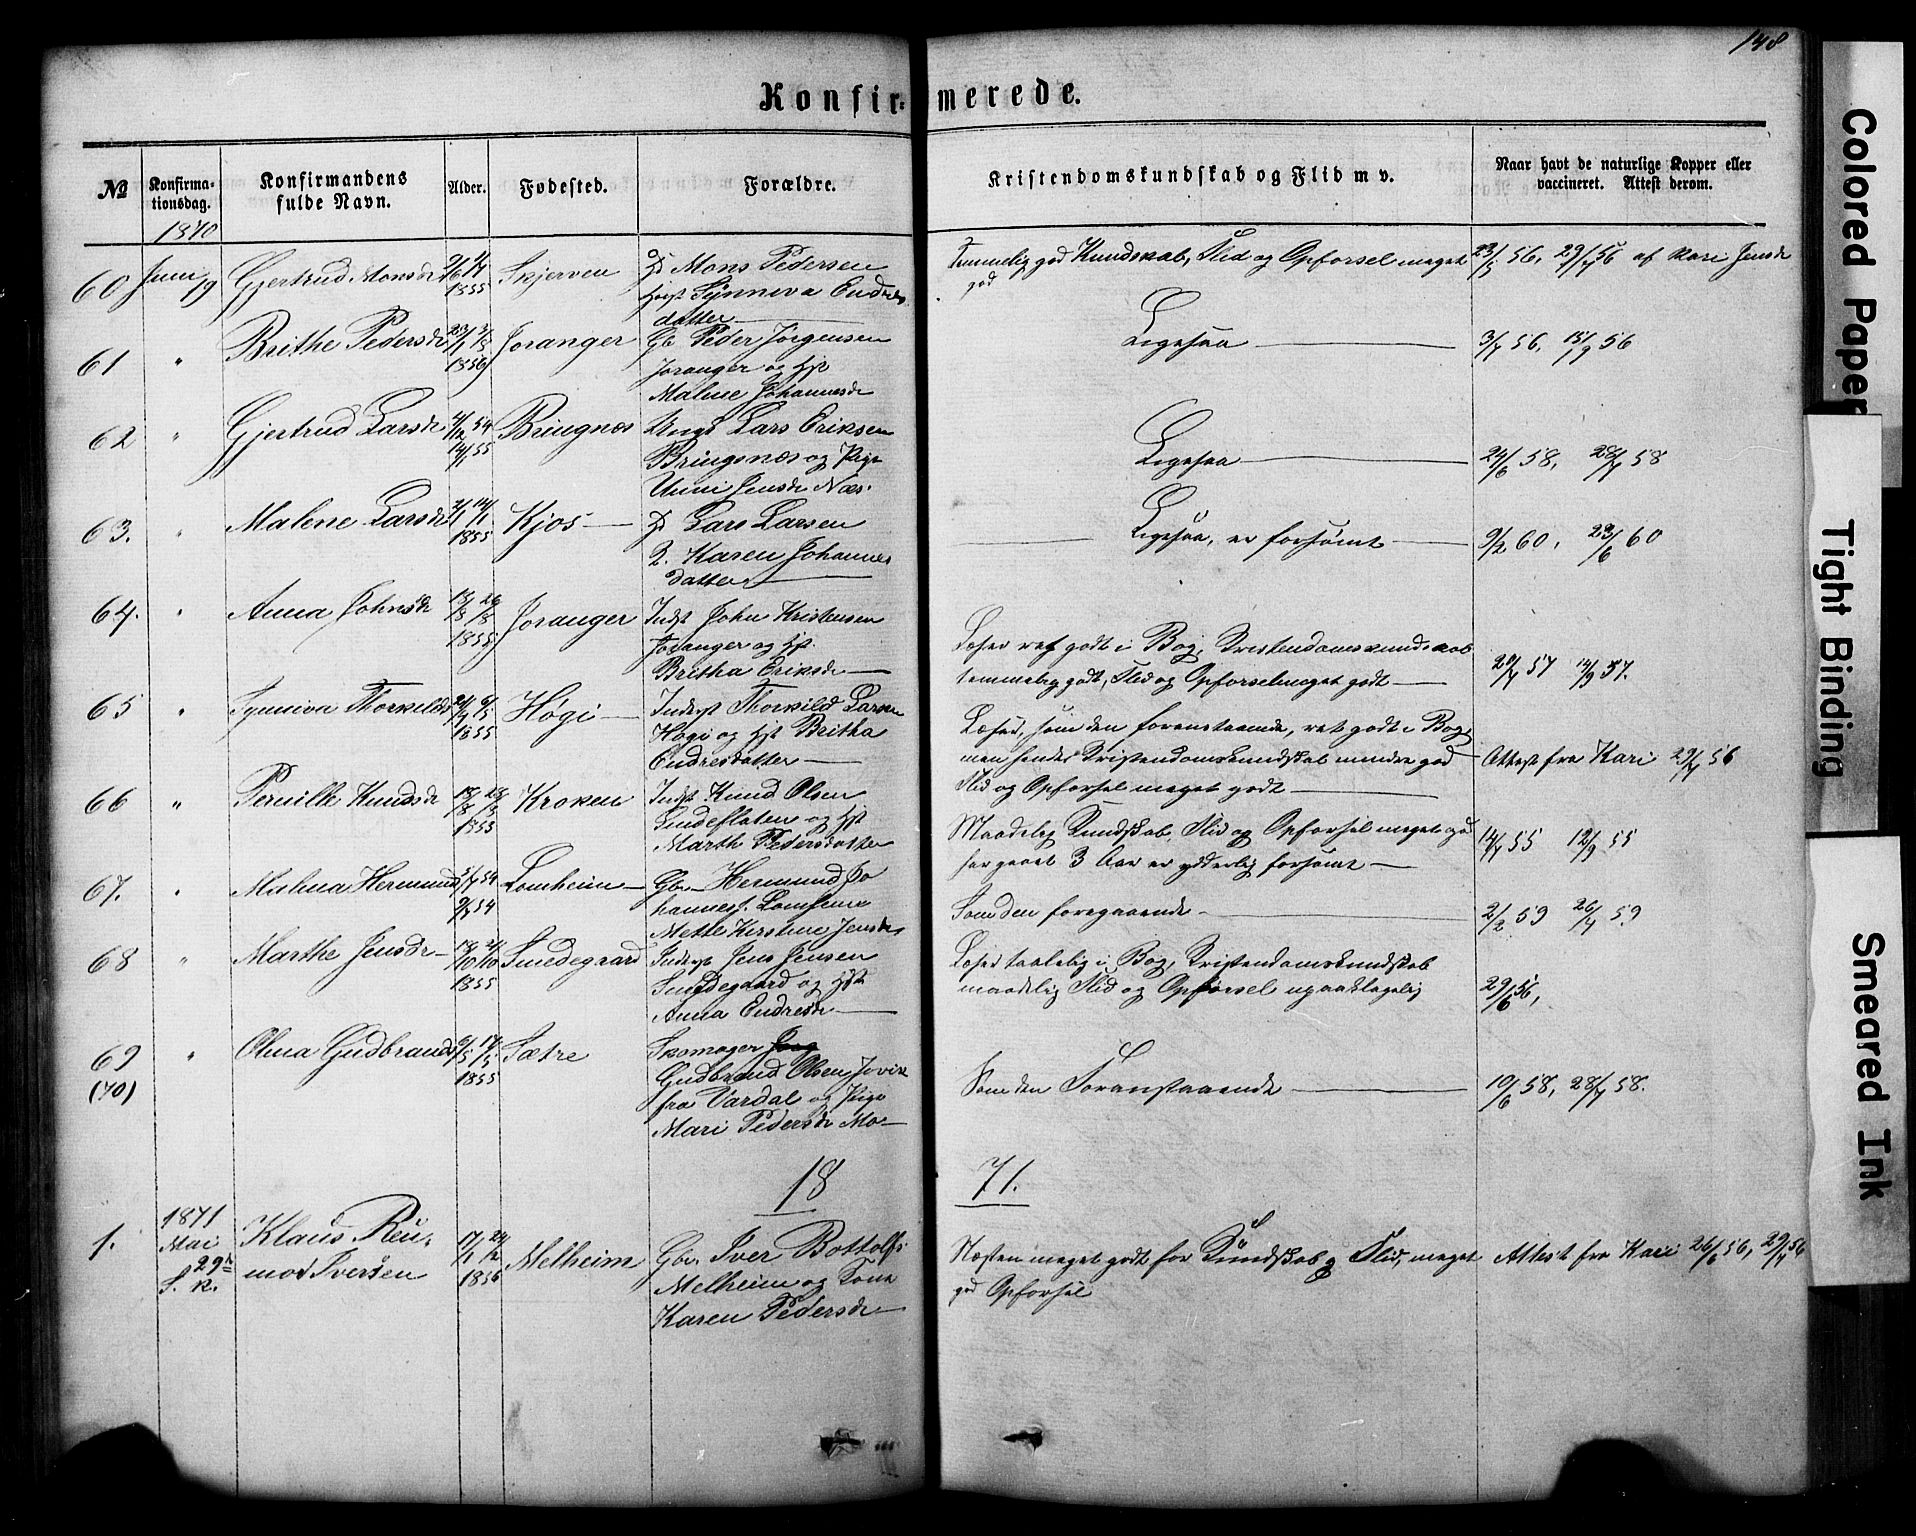 148
Konfirmerede.
№
Konfirma-
tionsdag.
Konfirmandens
fulde Navn.
Alder.
Fødested.
Forældre.
Kristendomskundskab og Flid m v.
Naar havt de naturlige Kopper eller
vaccineret. Attest derom.
1870
60 Juni 19 Gjertrud Monsdr 1855 Skjerven
Mons Pedersen
Synneva Endres
datter
Temmelig god Kundskab, Flid og Opførsel meget
god
23/5 56, 29/7 56 af Kari Jensdr
61 " Brithe Pedersdr 23/1 2/3 1856 Joranger
Gb Peder Jørgensen
Joranger og Hst
Malene Johannesdr
Ligesaa
3/7 56, 15/9 56
62 " Gjertrud Larsdr 4/12 54 14/1 55 Bringnæs
Ungk Lars Eriksen
Bringsnæs og Pige
Unni Jensdr Næs.
Ligesaa
24/6 58, 28/7 58
63. " Malene Larsdr 2/1 14/1 1855 Kjos
Lars Larsen
Q. Karen Johannes
datter
Ligesaa, er forsømt
9/2 60, 23/6 60
64. " Anna Johnsdr 18/8 26/8 1855 Joranger
Indst John Kristensen
Joranger og Hst.
Britha Eriksdr
Læser ret godt i Bog, Kristendomskundskab
temmelig godt, Flid og Opførsel meget godt
20/7 57 14/9 57.
65 " Synneva Thorkildsd 24/4 6/5 1855 Høgi
Inderst Thorkild Larsen
Høgi og Hst Britha
Endresdatter
Læser, som den foranstaaende, ret godt i Bog,
men hendes Kristendomskundskab mindre god
Flid og Opførsel meget godt
Attest fra Kari 29/7 56
66 " Pernille Knudsdr 18/8 28/8 1853 Kroken
Indst Knud Olsen
Lindeflaten og Hst
Marth Pedersdatter
Maadelig Kundskab, Flid og Opførsel meget god
har gaaet 3 Aar er ydderlig forsømt
14/7 55 12/9 55
67. " Malena Hermunds 5/7 54 9/7 54 Lomheim
Gbr. Hermund Jo
hannes. Lomheim
Mette Kirstine Jensdr
Som den foregaaende
2/2 59 26/7 59.
68 " Marthe Jensdr 18/10 21/10 1855 Smedegaard
Inderst Jens Jensen
Smedegaard og Hst
Anna Endresdr
Læser taalelig i Bog, Kristendomskundskab
maadelig Flid og Opførsel upaaklagelig
29/6 56,
69 " Olina Gudbrands 6/5 17/5 1855 Sætre
(70)
Skomager
Gudbrand Olsen Jovik
fra Vardal og Pige
Mari Pedersdr Mo
Som den Foranstaaende
10/6 58, 28/7 58.
18 71.
1. 1871
Mai
29de
S. K.
Klaus Reu-
mod Iversen
17/1 24/2 1856 Melheim
Gbr. Iver Bottolfs
Melheim og Kone
Karen Pedersdr
Næsten meget godt for Kundskab og Flid, meget
god Opførsel
Attest fra Kari 26/6 56, 29/7 56
Colored Paper
Tight Binding
Smeared Ink